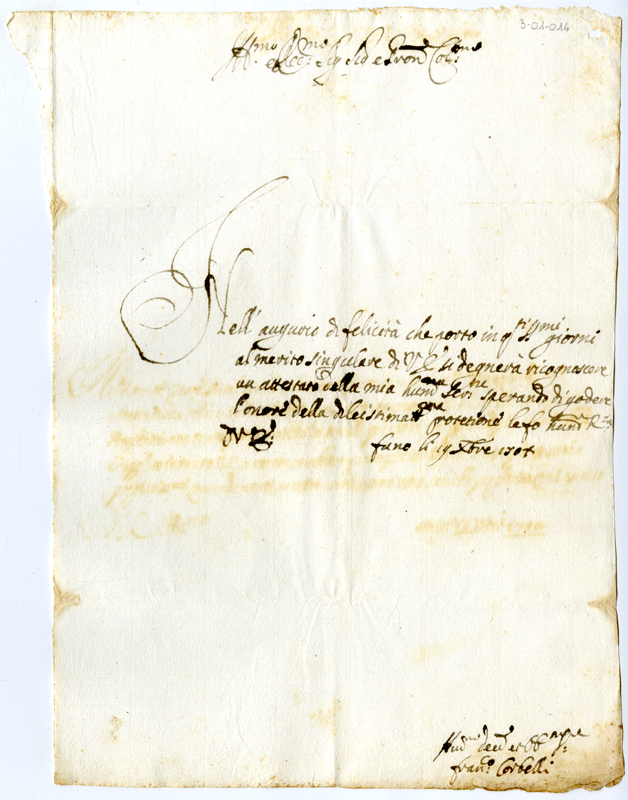 3-01-014
Ill.mo et Ecc.mo Sig. Sig. e Pron. Col.mo
Nell' augurio di felicità che porto in q.ti S.mi giorni
al merito singulare di V.E. si degnerà ricognoscere
un attestato della mia hum.ma Ser.ne sperando di godere
l'onore della di lei stimat.ma protetione le fo hum.a R.za
D V.E.
fano li 19 Xbre 1707
Hum.mo Dev.mo et Obb.
Fran.o Corbelli